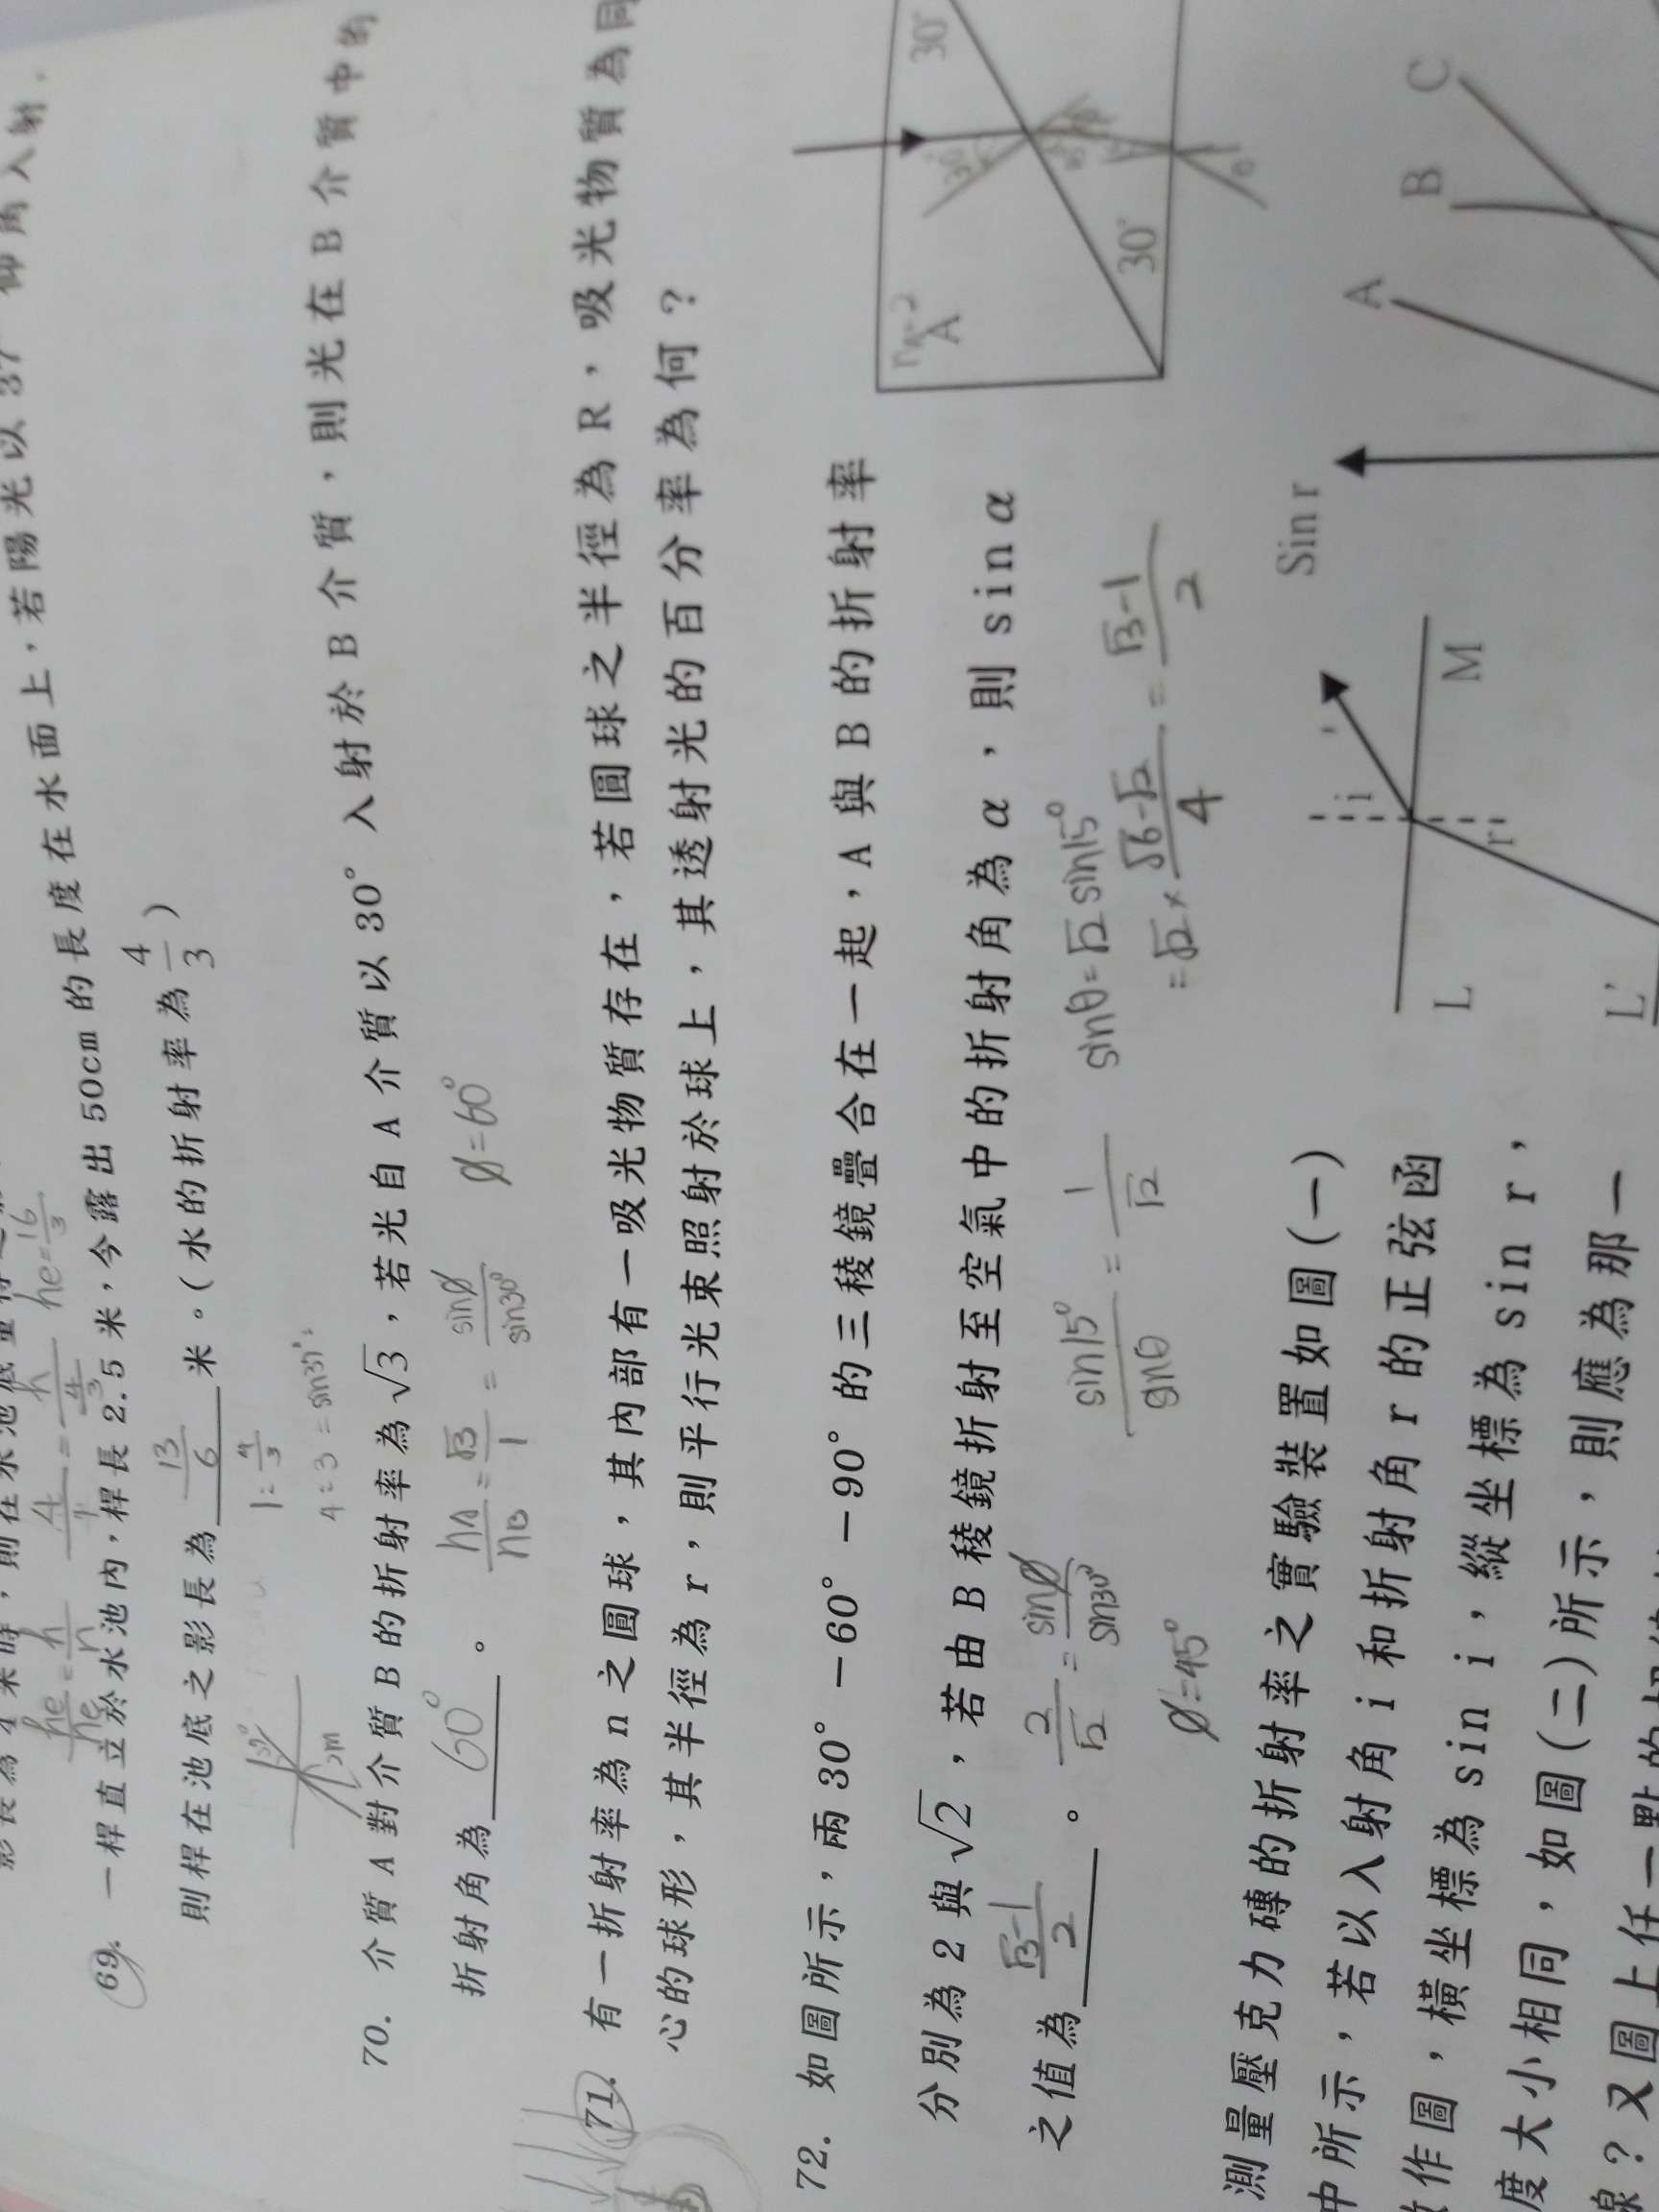 若陽光以37°仰角入射.
he/he = h/n 4/1 = h/(4/3) he=16/3
69. 一桿直立於水池內，桿長2.5米，今露出50cm的長度在水面上，
則桿在池底之影長為 13/6 米。(水的折射率為4/3)
2m
1:4/3
4:3=sin37°:
70. 介質A對介質B的折射率為√3，若光自A介質以30°入射於B介質，則光在B介質中的
折射角為 60° 。
nA/nB = √3/1 = sinø/sin30° ø=60°
71. 有一折射率為n之圓球，其內部有一吸光物質存在，若圓球之半徑為R，吸光物質為同
心的球形，其半徑為r，則平行光束照射於球上，其透射光的百分率為何？
72. 如圖所示，兩30°－60°－90°的三稜鏡疊合在一起，A與B的折射率
分別為2與√2，若由B稜鏡折射至空氣中的折射角為α，則sinα
之值為 (√3-1)/2 。
2/√2 = sinø/sin30°
ø=45°
sin15°/sinθ = 1/√2
sinθ=√2 sin15°
=√2×(√6-√2)/4 = (√3-1)/2
nA=2
A
30°
30°
θ
測量壓克力磚的折射率之實驗裝置如圖(一)
中所示，若以入射角i和折射角r的正弦函
作圖，橫坐標為sin i，縱坐標為sin r，
度大小相同，如圖(二)所示，則應為那一
線？又圖上任一點的切
i
r
L
M
L'
Sin r
A
B
C